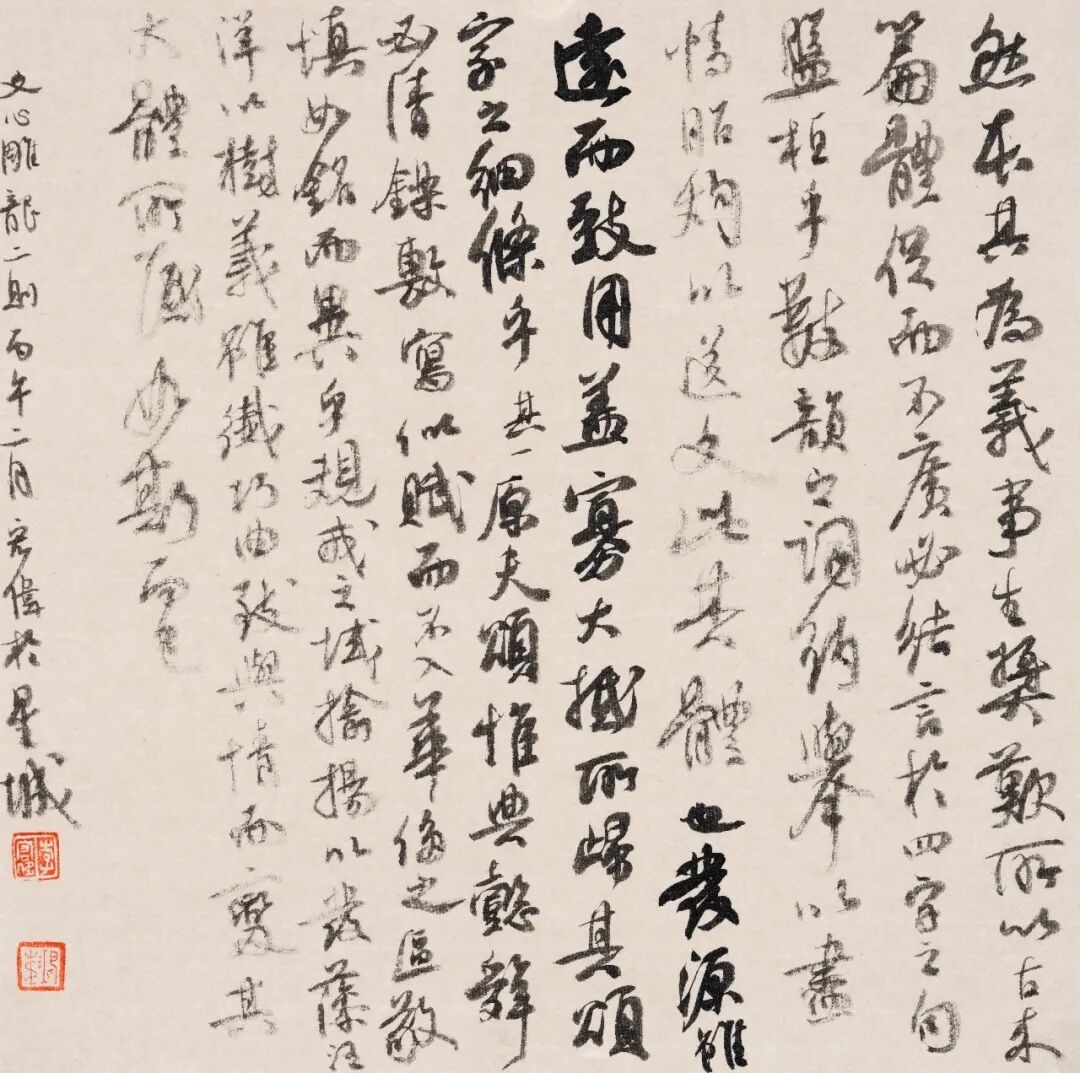 然本其為義事生獎歎所以古來
篇體促而不廣必結言於四字之句
盤桓乎數韻之詞約舉以盡
情昭灼以送文此其體也發源雖
遠而致用蓋寡大抵所歸其頌
家之細條乎其一原夫頌惟典懿辭
必清鑠敷寫似賦而不入華侈之區敬
慎如銘而異乎規戒之域揄揚以發藻汪
洋以樹義雖纖巧曲致與情而變其
大體所底如斯而已
文心雕龍二則丙午二月宏偉於星城